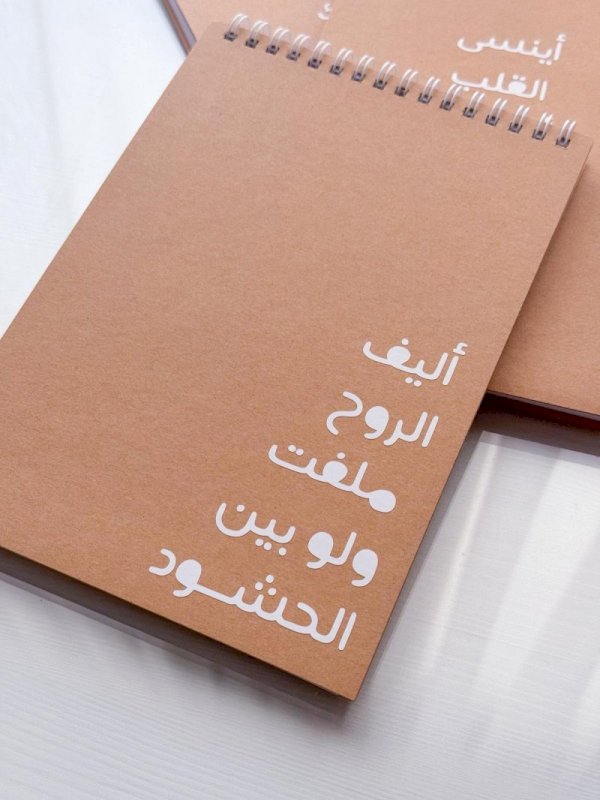 أينسى
القلب
أليف
الروح
ملفت
ولو بين
الحشود